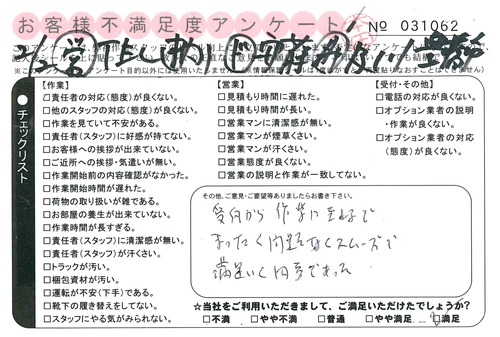 お客様不満足度アンケート
№ 031062
チェックリスト
【作業】
□責任者の対応(態度)が良くない。
□他のスタッフの対応(態度)が良くない。
□作業を見ていて不安がある。
□責任者(スタッフ)に好感が持てない。
□お客様への挨拶が出来ていない。
□ご近所への挨拶・気遣いが無い。
□作業開始前の内容確認がなかった。
□作業開始時間が遅れた。
□荷物の取り扱いが雑である。
□お部屋の養生が出来ていない。
□作業時間が長すぎる。
□責任者(スタッフ)に清潔感が無い。
□責任者(スタッフ)が汗さい。
□トラックが汚い。
□梱包資材が汚い。
□運転が不安(下手)である。
□靴下の履き替えをしてない。
□スタッフにやる気がみられない。
【営業】
□見積もり時間に遅れた。
□見積もり時間が長い。
□営業マンに清潔感が無い。
□営業マンが煙草くさい。
□営業マンが汗くさい。
□営業態度が良くない。
□営業の説明と作業が一致してない。
【受付・その他】
□電話の対応が良くない。
□オプション業者の説明
・作業が良くない。
□オプション業者の対応
(態度)が良くない。
その他、ご意見・ご要望等ありましたらお書き下さい。
受付から作業に至るまで
まったく問題なくスムーズで
満足いく内容であった
☆当社をご利用いただきまして、ご満足いただけたでしょうか?
□不満 □やや不満 □普通 □やや満足 □満足